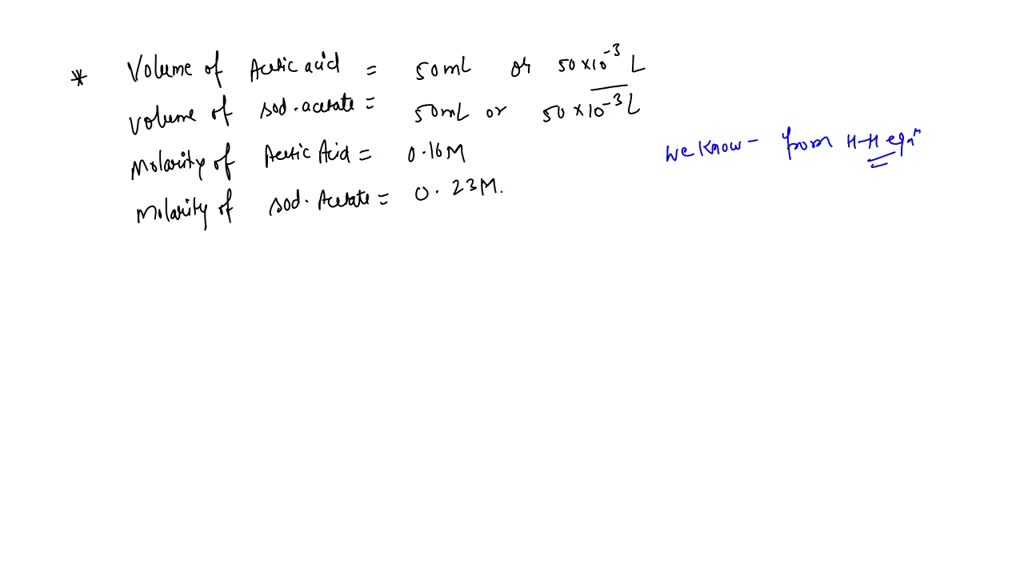 * Volume of Acetic acid = 50mL or 50×10⁻³ L
Volume of sod. acetate = 50mL or 50×10⁻³ L
Molarity of Acetic Acid = 0.16M
Molarity of sod. Acetate = 0.23M.
We know - from H-H eqⁿ